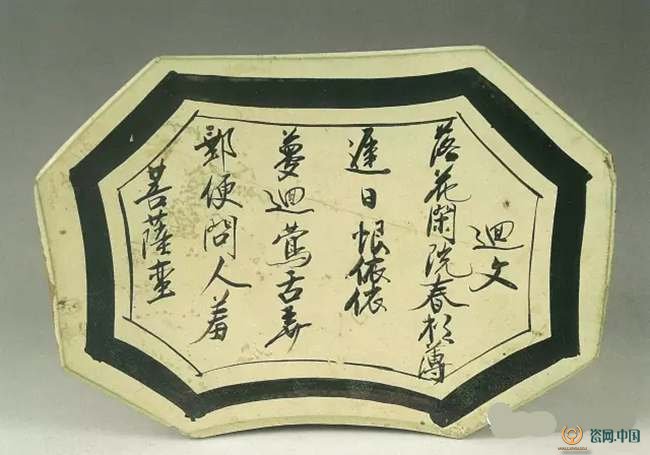 迴文
落花閑院春衫薄
遲日恨依依
夢迴鶯舌弄
郵便問人羞
菩薩蛮
瓷网.中国